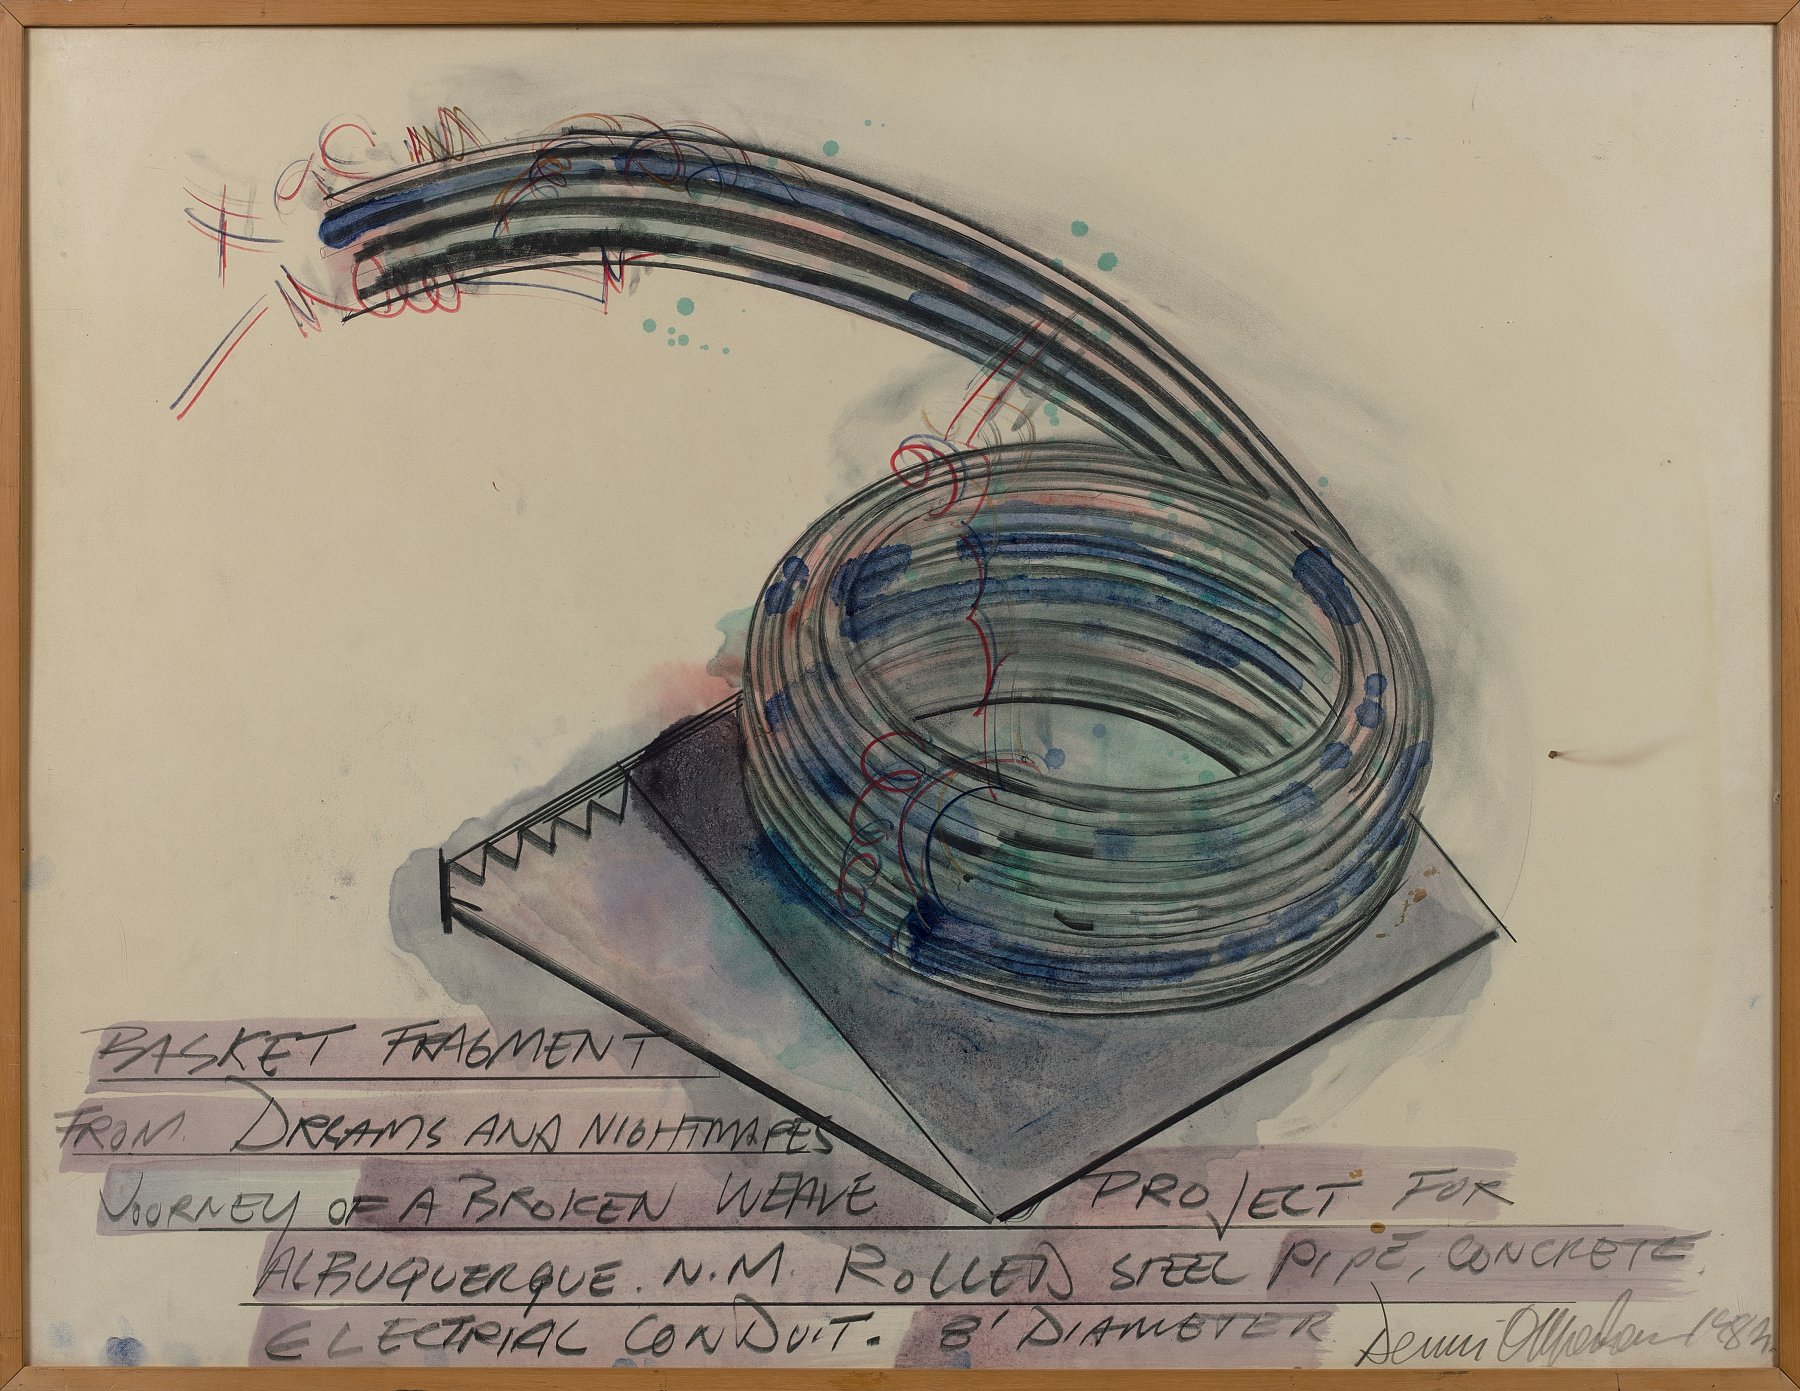 BASKET FRAGMENT
FROM DREAMS AND NIGHTMARES
JOURNEY OF A BROKEN WEAVE PROJECT FOR
ALBUQUERQUE. N.M. ROLLED STEEL PIPE, CONCRETE.
ELECTRIAL CONDUIT. 8' DIAMETER
Dennis Oppenheim